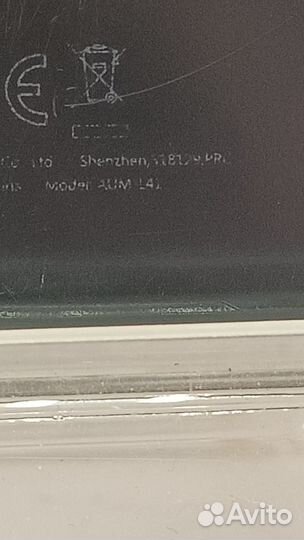 CE
Co., Ltd. Shenzhen, 518129, PRC
Model: AUM-L41
Avito